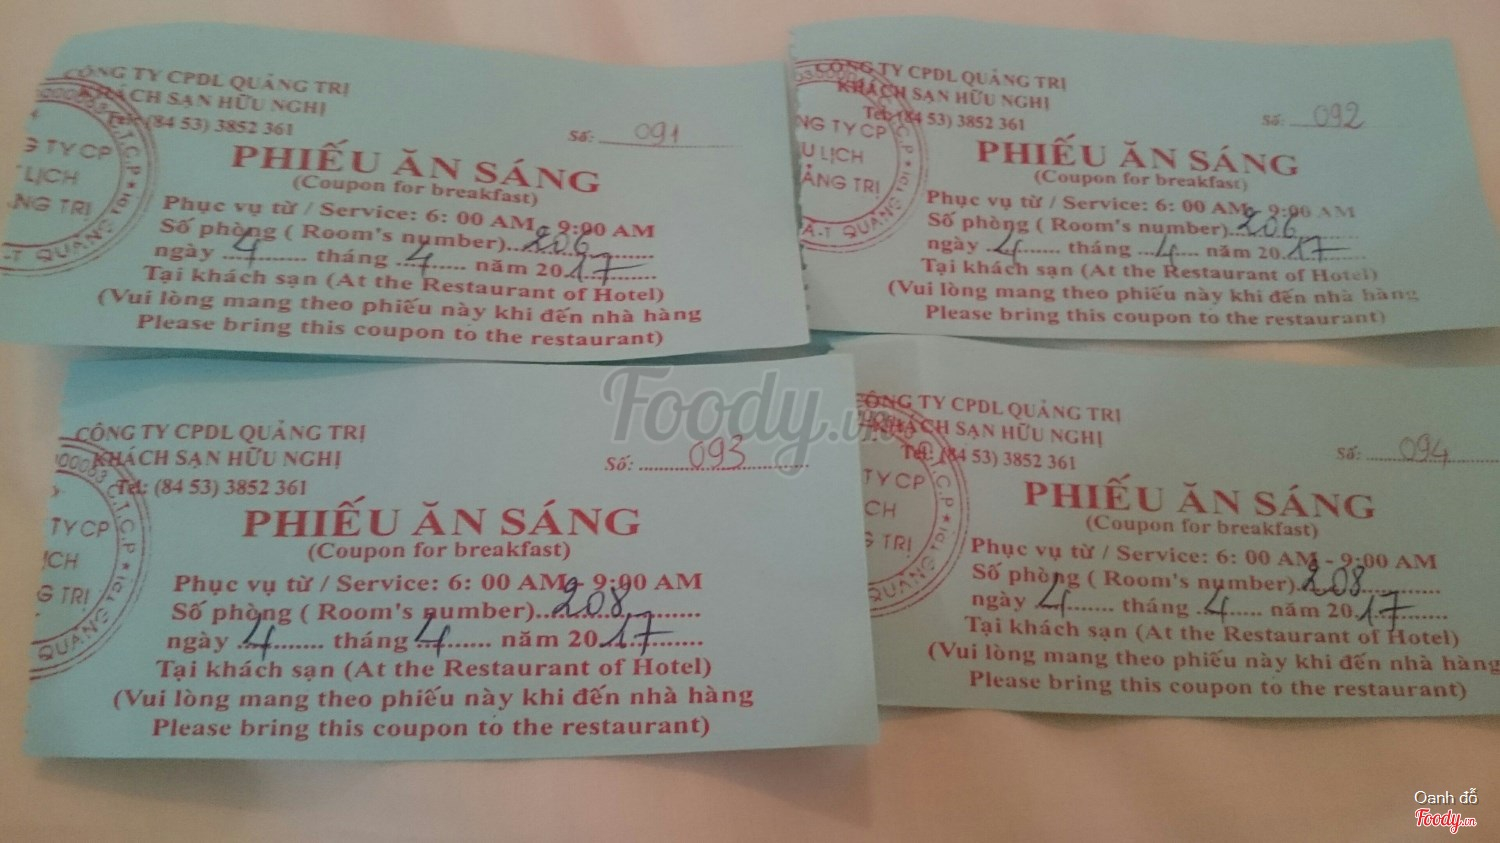 CÔNG TY CPDL QUẢNG TRỊ
KHÁCH SẠN HỮU NGHỊ
Tel: (84 53) 3852 361
Số: 091
PHIẾU ĂN SÁNG
(Coupon for breakfast)
Phục vụ từ / Service: 6: 00 AM - 9:00 AM
Số phòng ( Room's number)...206
ngày ..4.......... tháng ...4....... năm 20.17........
Tại khách sạn (At the Restaurant of Hotel)
(Vui lòng mang theo phiếu này khi đến nhà hàng
Please bring this coupon to the restaurant)
CÔNG TY CPDL QUẢNG TRỊ
KHÁCH SẠN HỮU NGHỊ
Tel: (84 53) 3852 361
Số: 092
PHIẾU ĂN SÁNG
(Coupon for breakfast)
Phục vụ từ / Service: 6: 00 AM - 9:00 AM
Số phòng ( Room's number)...206
ngày ..4....... tháng ...4..... năm 20.17........
Tại khách sạn (At the Restaurant of Hotel)
(Vui lòng mang theo phiếu này khi đến nhà hàng
Please bring this coupon to the restaurant)
CÔNG TY CPDL QUẢNG TRỊ
KHÁCH SẠN HỮU NGHỊ
Tel: (84 53) 3852 361
Số: 093
PHIẾU ĂN SÁNG
(Coupon for breakfast)
Phục vụ từ / Service: 6: 00 AM - 9:00 AM
Số phòng ( Room's number)...208
ngày ..4.......... tháng ..4....... năm 20.17........
Tại khách sạn (At the Restaurant of Hotel)
(Vui lòng mang theo phiếu này khi đến nhà hàng
Please bring this coupon to the restaurant)
CÔNG TY CPDL QUẢNG TRỊ
KHÁCH SẠN HỮU NGHỊ
Tel: (84 53) 3852 361
Số: 094
PHIẾU ĂN SÁNG
(Coupon for breakfast)
Phục vụ từ / Service: 6: 00 AM - 9:00 AM
Số phòng ( Room's number)..208
ngày ..4....... tháng ..4...... năm 20.17........
Tại khách sạn (At the Restaurant of Hotel)
(Vui lòng mang theo phiếu này khi đến nhà hàng
Please bring this coupon to the restaurant)
Foody.vn
Oanh đỗ
Foody.vn